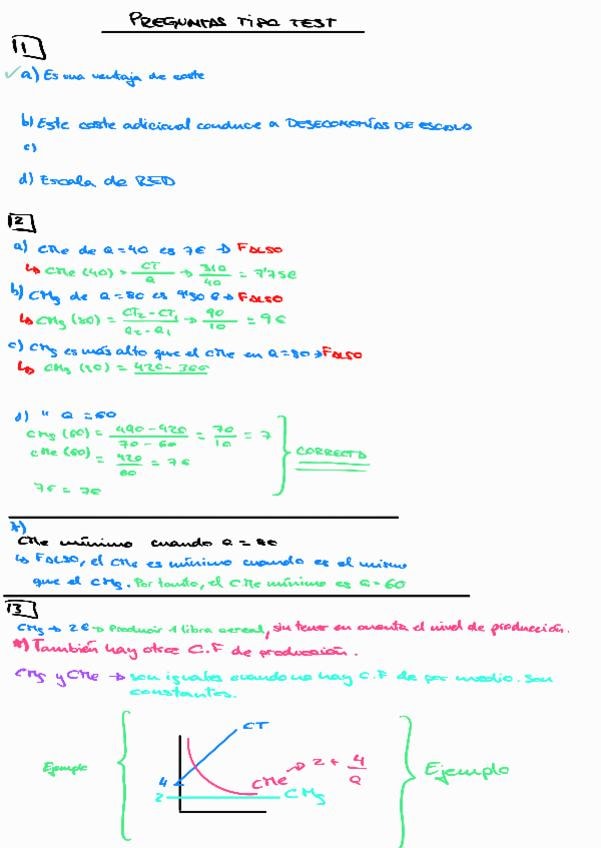 PREGUNTAS TIPO TEST
11
✓ a) Es una ventaja de coste
b) Este coste adicional conduce a DESECONOMÍAS DE ESCALA
c)
d) Escala de RED
12
a) CMe de Q=40 es 7€ → FALSO
↳ CMe (40) = CT/Q → 310/40 = 7'75€
b) CMg de Q=80 es 9'50 € → FALSO
↳ CMg (80) = CT₂ - CT₁ / Q₂ - Q₁ → 90/10 = 9€
c) CMg es más alto que el CMe en Q=80 → FALSO
↳ CMg (80) = 420 - 360
d) " Q = 60
CMg (60) = 490 - 420 / 70 - 60 = 70/10 = 7
CMe (60) = 420/60 = 7€
CORRECTO
7€ = 7€
*)
CMe mínimo cuando Q = 80
↳ FALSO, el CMe es mínimo cuando es el mismo
que el CMg. Por tanto, el CMe mínimo es Q=60
13
CMg → 2€ → Producir 1 libra cereal, sin tener en cuenta el nivel de producción.
*) También hay otros C.F de producción.
CMg y CMe → son iguales cuando no hay C.F de por medio. Son
constantes.
CT
Ejemplo
4
CMe → 2 + 4/Q
2
CMg
Ejemplo